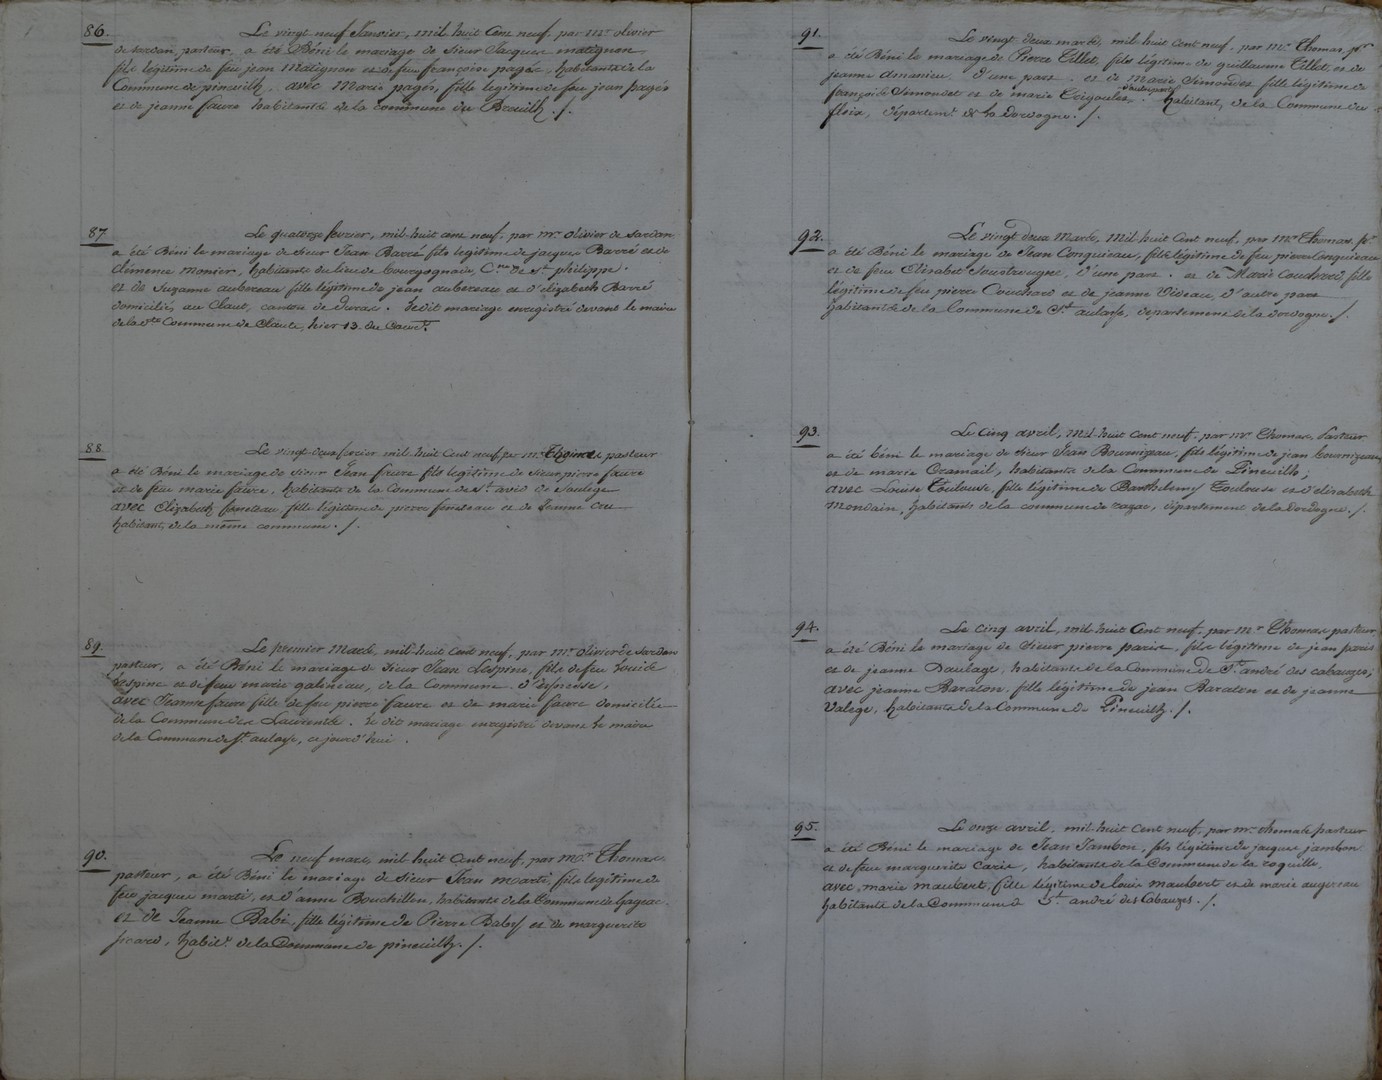 86.
Le vingt neuf Janvier, mil huit Cent neuf, par mr. olivier
de sardan, pasteur, a été Béni le mariage de Sieur Jacques matignon
fils légitime de feu jean Matignon et de feu françoise pagés, habitants de la
Commune de pineuilh, avec Marie pagés, fille legitime de feu jean pagés
et de jeanne faure habitants de la commune du Breuilh ./.
87.
Le quatorze fevrier, mil huit cent neuf, par mr. olivier de sardan
a été Béni le mariage de sieur Jean Barré fils legitime de jacques Barré et de
clémence monier, habitants du lieu de bourgognade, Cne. de st. philippe.
et de Suzanne aubereau fille légitime de jean aubereau et d'elizabeth Barré
domiciliés au Claut, canton de Duras. ledit mariage enregistré devant le maire
de la dte. Commune de Claute, hier 13. du Court.
88.
Le vingt-deux fevrier mil huit Cent neuf, pr. mr. Thomas pasteur
a été Béni le mariage de sieur Jean faure fils legitime de sieur pierre faure
et de feu marie faure, habitants de la Commune de st. avid de Soulège
avec Elizabeth feneteau, fille légitime de pierre feneteau et de Jeanne cru
habitants de la même commune. /.
89.
Le premier Mars, mil huit Cent neuf, par mr. olivier de Sardan
pasteur, a été Béni le mariage de sieur Jean Lespine, fils de feu Louis
Lespine et de feue marie galineau, de la Commune d'eynesse,
avec Jeanne faure fille de feu pierre faure et de marie faure domiciliée
de la Commune des Laurents. le dit mariage enregistré devant le maire
de la Commune de St. aulaye, ce jourd'hui.
90.
Le neuf mars, mil huit Cent neuf, par mr. Thomas
pasteur, a été Béni le mariage de sieur Jean marti, fils legitime de
feu jacques marti, et d'anne Bouchillon, habitants de la Commune de Gageac
et de Jeanne Babi, fille légitime de Pierre Baby et de marguerite
picard, habits. de la Commune de pineuilh. /.
91.
Le vingt deux mars, mil huit cent neuf, par mr. Thomas, pr.
a été Béni le mariage de Pierre Tillet, fils légitime de guillaume Tillet, et de
jeanne amanieu, d'une part. et de Marie Simondet fille légitime de
françois Simondet et de marie Trigoules, d'autre part. habitants de la Commune du
fleix, départemt. de la Dordogne. /.
92.
Le vingt deux Mars, Mil huit Cent neuf, par mr. Thomas, pr.
a été Béni le mariage de Jean Conquieau, fils légitime de feu pierre Conquieau
et de feue Elisabet , d'une part. et de Marie Couchard fille
légitime de feu pierre Couchard et de jeanne Videau, d'autre part
habitants de la Commune de St. aulaye, département de la dordogne. /.
93.
Le Cinq avril, Mil huit Cent neuf. par mr. Thomas, Pasteur
a été béni le mariage de sieur Jean Bournizeau, fils légitime de jean bournizeau
et de marie Crameil, habitants de la Commune de Pineuilh;
avec Louise Toulouse, fille légitime de Barthelemy Toulouse et d'elizabeth
Mondain, habitants de la commune de razac, département de la Dordogne. /.
94.
Le Cinq avril, mil huit Cent neuf, par mr. Thomas pasteur
a été Béni le mariage de Sieur pierre paris, fils légitime de jean paris
et de jeanne Daulage, habitants de la Commune de St. andré des cabauzes;
avec jeanne Baraton, fille légitime de jean Baraton et de jeanne
Valege, habitants de la Commune de Pineuilh. /.
95.
Le onze avril, mil huit Cent neuf. par mr. thomas pasteur
a été Béni le mariage de Jean Jambon, fils légitime de jacques jambon
et de feue marguerite carié, habitants de la Commune de la roquille
avec marie maubert, fille légitime de louis maubert et de marie augereau
habitants de la Commune de St. andré des Cabauzes. /.